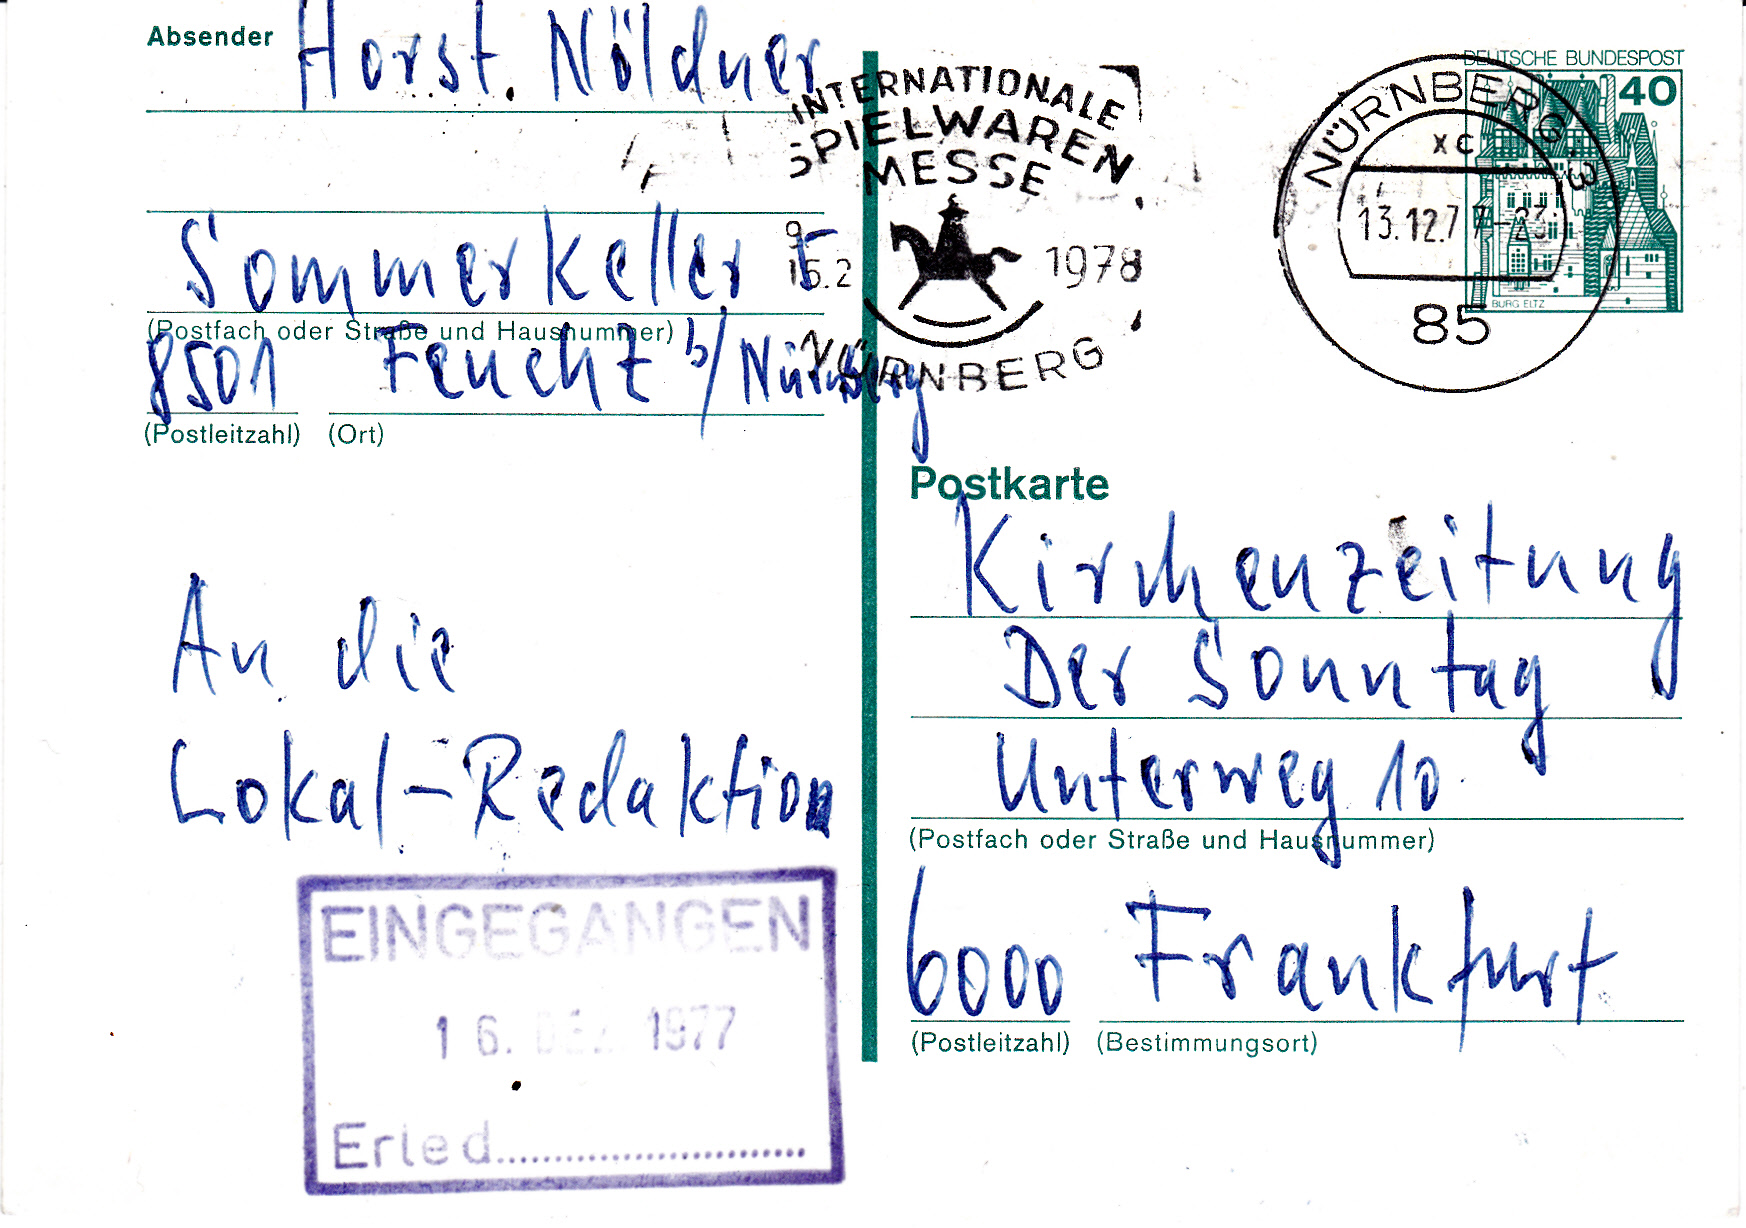 Absender Horst. Nöldner
Sommerkeller 5
(Postfach oder Straße und Hausnummer)
8501 Feucht b/Nürnberg
(Postleitzahl) (Ort)
An die
Lokal-Redaktion
EINGEGANGEN
16. DEZ. 1977
Erled..............................
INTERNATIONALE
SPIELWAREN
MESSE
9.-
15.2
1978
NÜRNBERG
NÜRNBERG 3
xc
13.12.77-23
85
DEUTSCHE BUNDESPOST
40
BURG ELTZ
Postkarte
Kirchenzeitung
Der Sonntag
Unterweg 10
(Postfach oder Straße und Hausnummer)
6000 Frankfurt
(Postleitzahl) (Bestimmungsort)